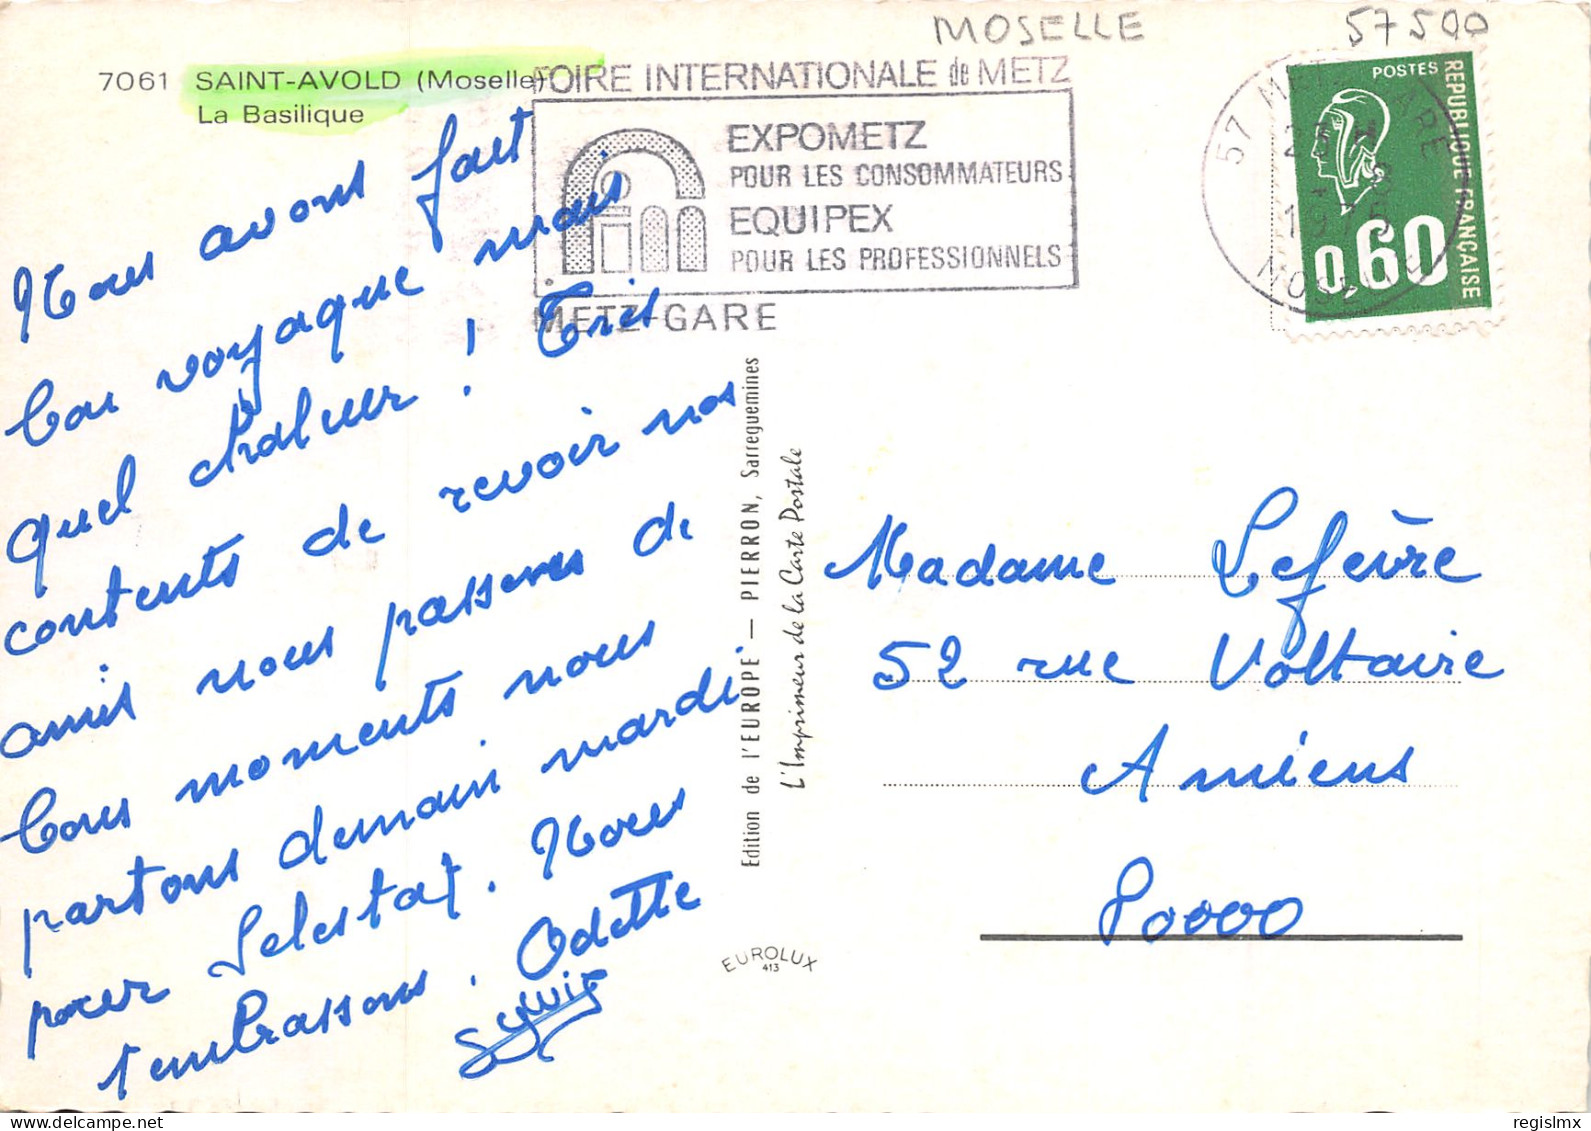 MOSELLE 57500
7061 SAINT-AVOLD (Moselle)
La Basilique
FOIRE INTERNATIONALE de METZ
EXPOMETZ
POUR LES CONSOMMATEURS
EQUIPEX
POUR LES PROFESSIONNELS
METZ-GARE
57 METZ GARE
1975
MOSELLE
POSTES
REPUBLIQUE FRANÇAISE
0,60
Nous avons fait
bon voyage mais
quel chaleur ! Très
contents de revoir nos
amis nous passons de
bons moments nous
partons demain mardi
pour Selestat. Nous
t'embrassons. Odette
Sylvie
Edition de l'EUROPE — PIERRON, Sarreguemines
L'Imprimeur de la Carte Postale
EUROLUX
413
Madame Lefèvre
52 rue Voltaire
Amiens
80000
© regislmx
delcampe.net